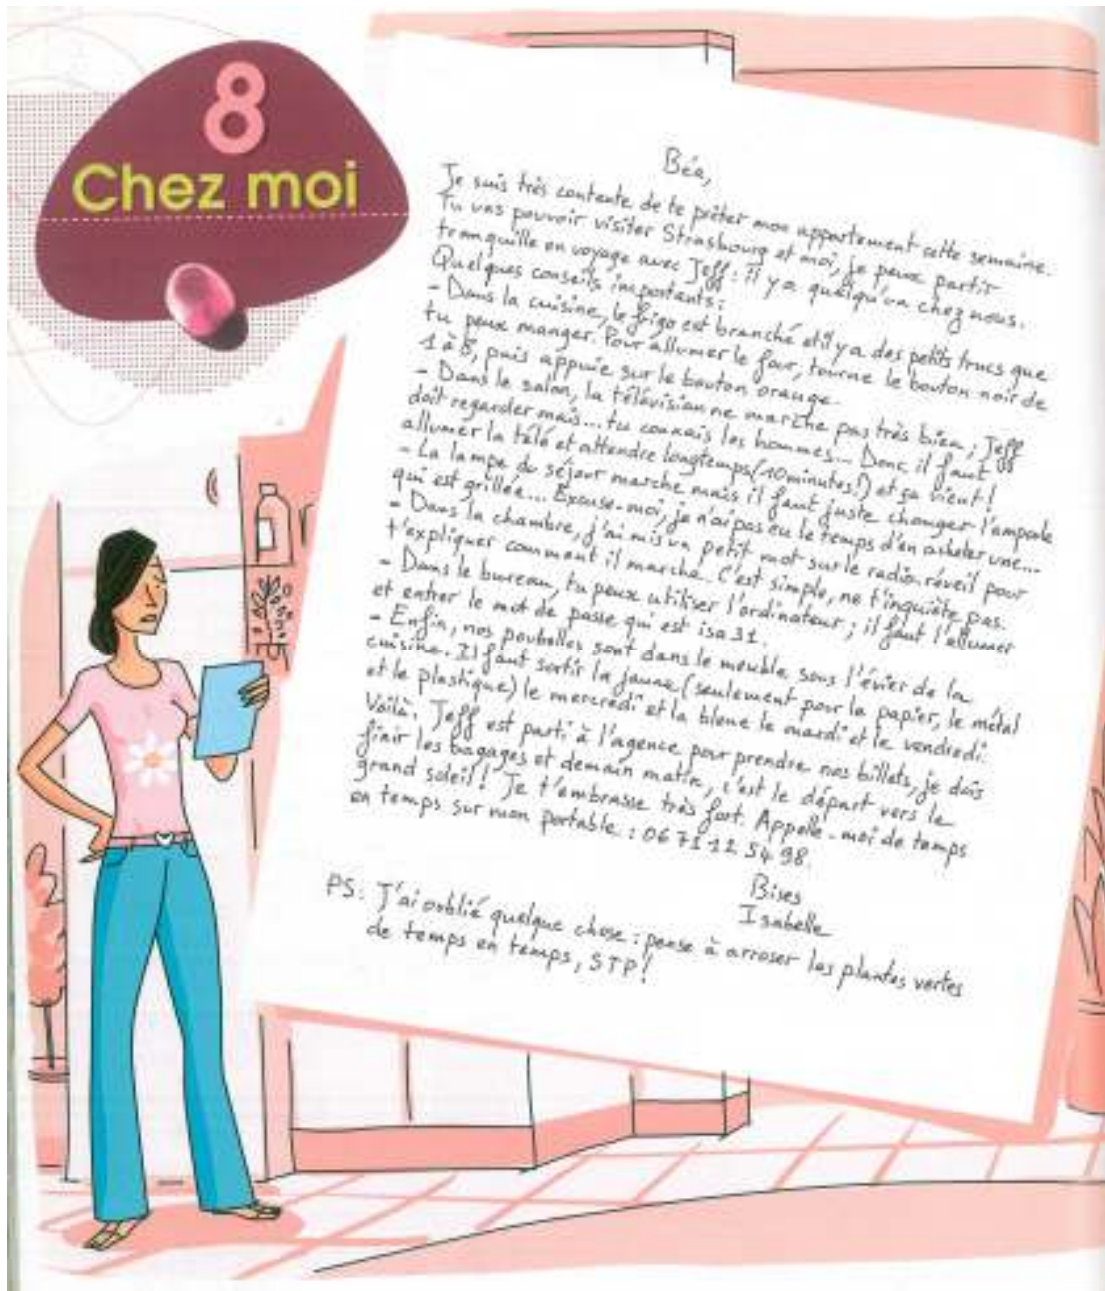 8
Chez moi
Béa,
Je suis très contente de te prêter mon appartement cette semaine.
Tu vas pouvoir visiter Strasbourg et moi, je peux partir
tranquille en voyage avec Jeff : il y a quelqu'un chez nous.
Quelques conseils importants :
- Dans la cuisine, le frigo est branché et il y a des petits trucs que
tu peux manger. Pour allumer le four, tourne le bouton noir de
1 à 8, puis appuie sur le bouton orange.
- Dans le salon, la télévision ne marche pas très bien ; Jeff
doit regarder mais... tu connais les hommes... Donc il faut
allumer la télé et attendre longtemps (10 minutes !) et ça vient !
- La lampe du séjour marche mais il faut juste changer l'ampoule
qui est grillée... Excuse-moi, je n'ai pas eu le temps d'en acheter une...
- Dans la chambre, j'ai mis un petit mot sur le radio-réveil pour
t'expliquer comment il marche. C'est simple, ne t'inquiète pas.
- Dans le bureau, tu peux utiliser l'ordinateur ; il faut l'allumer
et entrer le mot de passe qui est isa31.
- Enfin, nos poubelles sont dans le meuble, sous l'évier de la
cuisine. Il faut sortir la jaune (seulement pour le papier, le métal
et le plastique) le mercredi et la bleue le mardi et le vendredi.
Voilà. Jeff est parti à l'agence pour prendre nos billets, je dois
finir les bagages et demain matin, c'est le départ vers le
grand soleil ! Je t'embrasse très fort. Appelle-moi de temps
en temps sur mon portable : 06 71 12 54 98.
Bises
Isabelle
PS : J'ai oublié quelque chose : pense à arroser les plantes vertes
de temps en temps, STP !